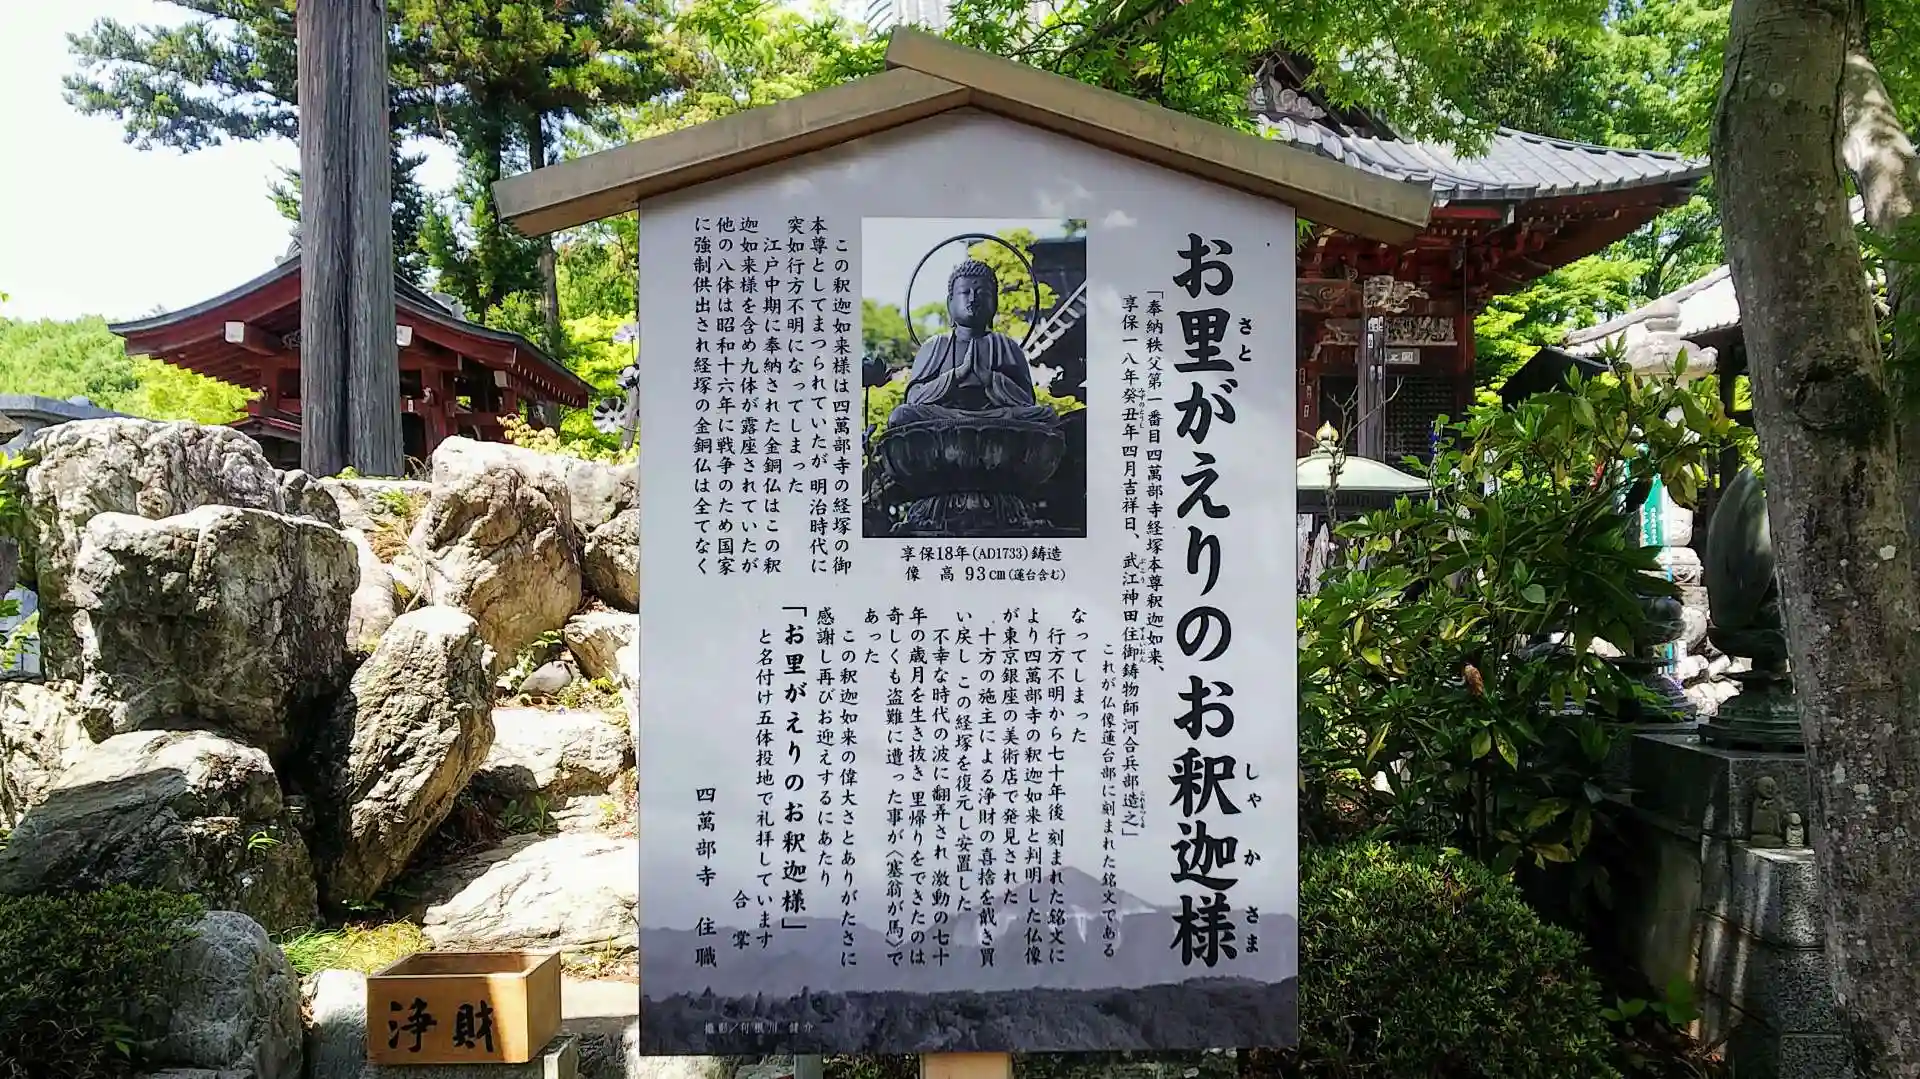 お里がえりのお釈迦様
さと
しゃ か さま
「奉納秩父第一番目四萬部寺経塚本尊釈迦如来、
享保一八年癸丑年四月吉祥日、武江神田住御鋳物師河合兵部造之」
みずのとうし
ぶこう
これが仏像蓮台部に刻まれた銘文である
享保18年(AD1733)鋳造
像 高 93cm(蓮台含む)
この釈迦如来様は四萬部寺の経塚の御
本尊としてまつられていたが明治時代に
突如行方不明になってしまった
江戸中期に奉納された金銅仏はこの釈
迦如来様を含め九体が露座されていたが
他の八体は昭和十六年に戦争のため国家
に強制供出され経塚の金銅仏は全てなく
なってしまった
行方不明から七十年後刻まれた銘文に
より四萬部寺の釈迦如来と判明した仏像
が東京銀座の美術店で発見された
十方の施主による浄財の喜捨を戴き買
い戻し この経塚を復元し安置した
不幸な時代の波に翻弄され 激動の七十
年の歳月を生き抜き 里帰りをできたのは
奇しくも盗難に遭った事が〈塞翁が馬〉で
あった
この釈迦如来の偉大さとありがたさに
感謝し再びお迎えするにあたり
「お里がえりのお釈迦様」
と名付け五体投地で礼拝しています
合掌
四萬部寺 住職
撮影／利根川 健介
浄財